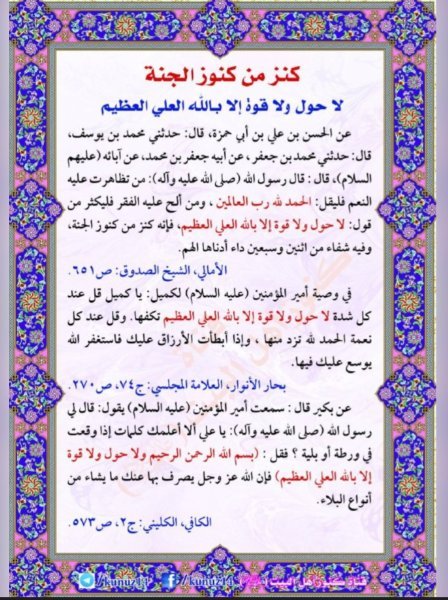 كنز من كنوز الجنة
لا حول ولا قوة إلا بالله العلي العظيم
عن الحسن بن علي بن أبي حمزة، قال: حدثني محمد بن يوسف،
قال: حدثني محمد بن جعفر، عن أبيه جعفر بن محمد، عن آبائه (عليهم
السلام)، قال: قال رسول الله (صلى الله عليه وآله): من تظاهرت عليه
النعم فليقل: الحمد لله رب العالمين، ومن ألح عليه الفقر فليكثر من
قول: لا حول ولا قوة إلا بالله العلي العظيم، فإنه كنز من كنوز الجنة،
وفيه شفاء من اثنين وسبعين داء أدناها الهم.
الأمالي، الشيخ الصدوق: ص٦٥١.
في وصية أمير المؤمنين (عليه السلام) لكميل: يا كميل قل عند
كل شدة لا حول ولا قوة إلا بالله العلي العظيم تكفها. وقل عند كل
نعمة الحمد لله تزد منها ، وإذا أبطأت الأرزاق عليك فاستغفر الله
يوسع عليك فيها.
بحار الأنوار، العلامة المجلسي: ج٧٤، ص٢٧٠.
عن بكير قال: سمعت أمير المؤمنين (عليه السلام) يقول: قال لي
رسول الله (صلى الله عليه وآله): يا علي ألا أعلمك كلمات إذا وقعت
في ورطة أو بلية ؟ فقل : (بسم الله الرحمن الرحيم ولا حول ولا قوة
إلا بالله العلي العظيم) فإن الله عز وجل يصرف بها عنك ما يشاء من
أنواع البلاء.
الكافي، الكليني: ج٢، ص٥٧٣.
قناة كنوز أهل البيت /kunuz14 /kunuz14